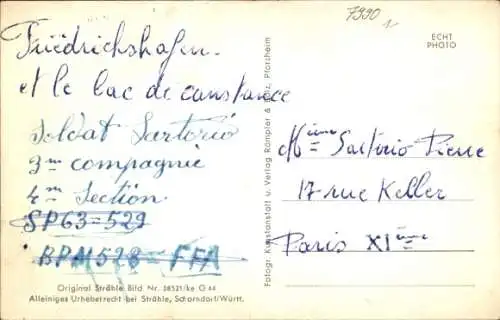 7990
ECHT
PHOTO
Friedrichshafen
et le lac de constance
Soldat Sartorio
3me compagnie
4me Section
SP63=529
BPM528=FFA
Original Strähle Bild Nr. 38521/ke O 44
Alleiniges Urheberrecht bei Strähle, Schorndorf/Württ.
Fotogr. Kunstanstalt u. Verlag Rämpfer & Pforzheim
Mième Sartorio Pierre
17 rue Keller
Paris XIème